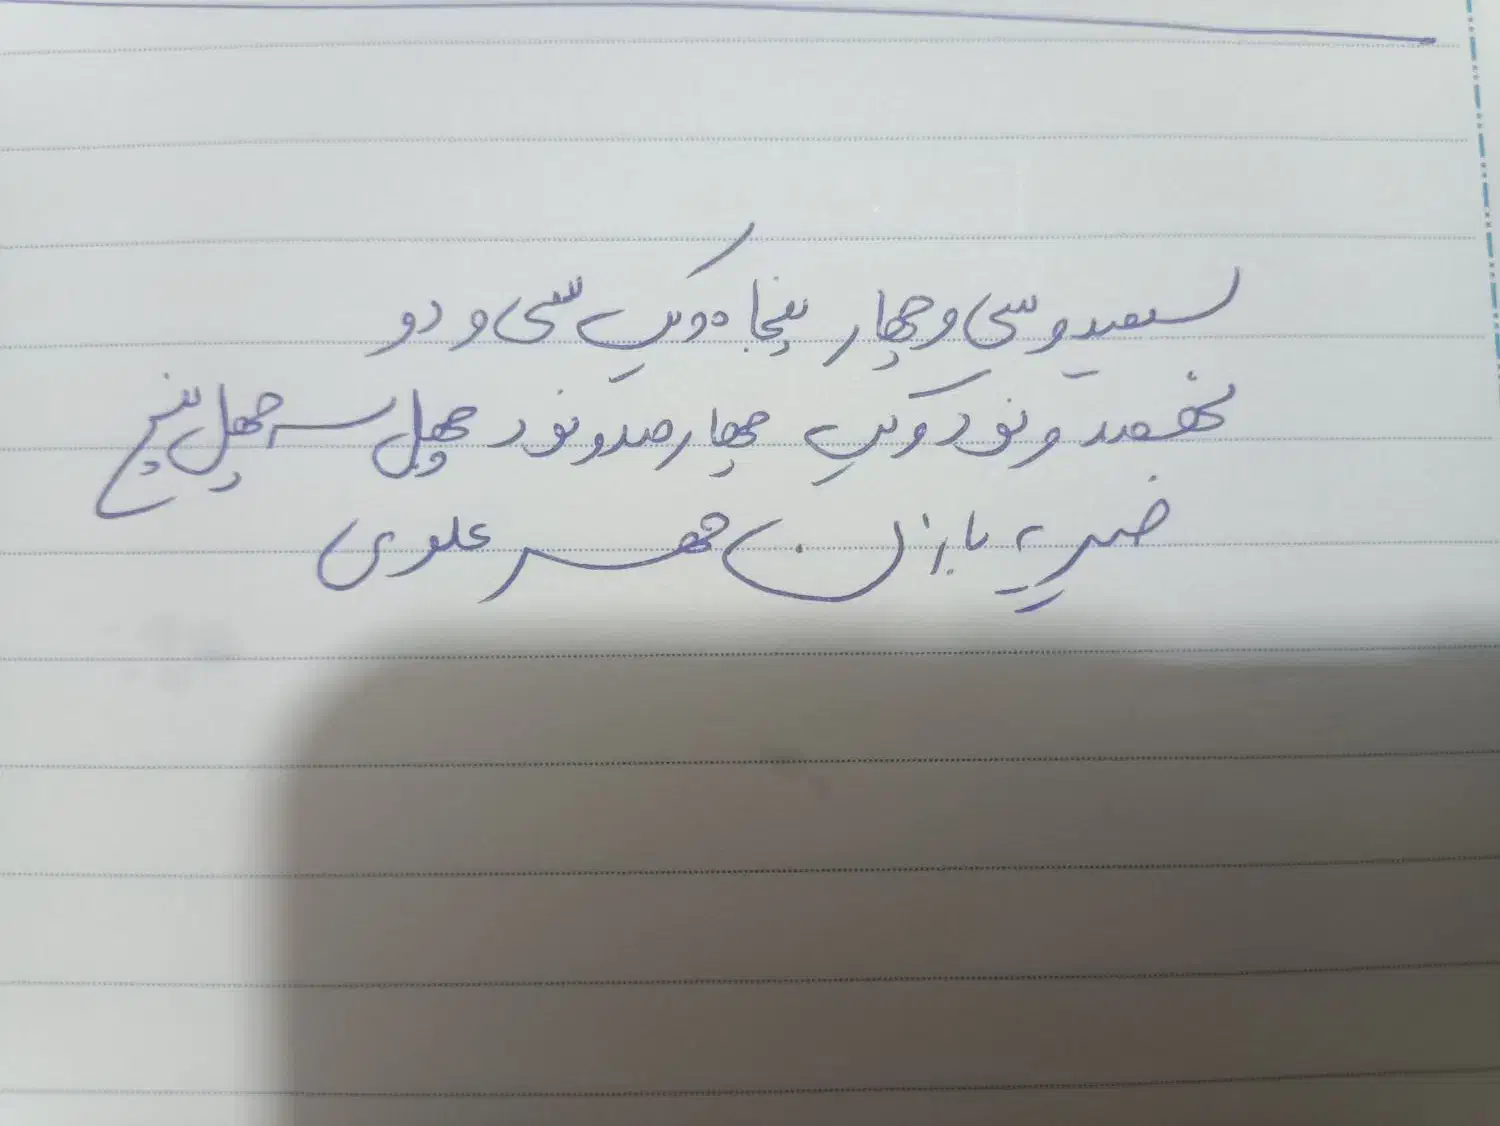 سیصد و سی و چهار پنجاه و یک سی و دو
نهصد و نود و یک چهارصد و نود چهل سه چهل پنج
علوی